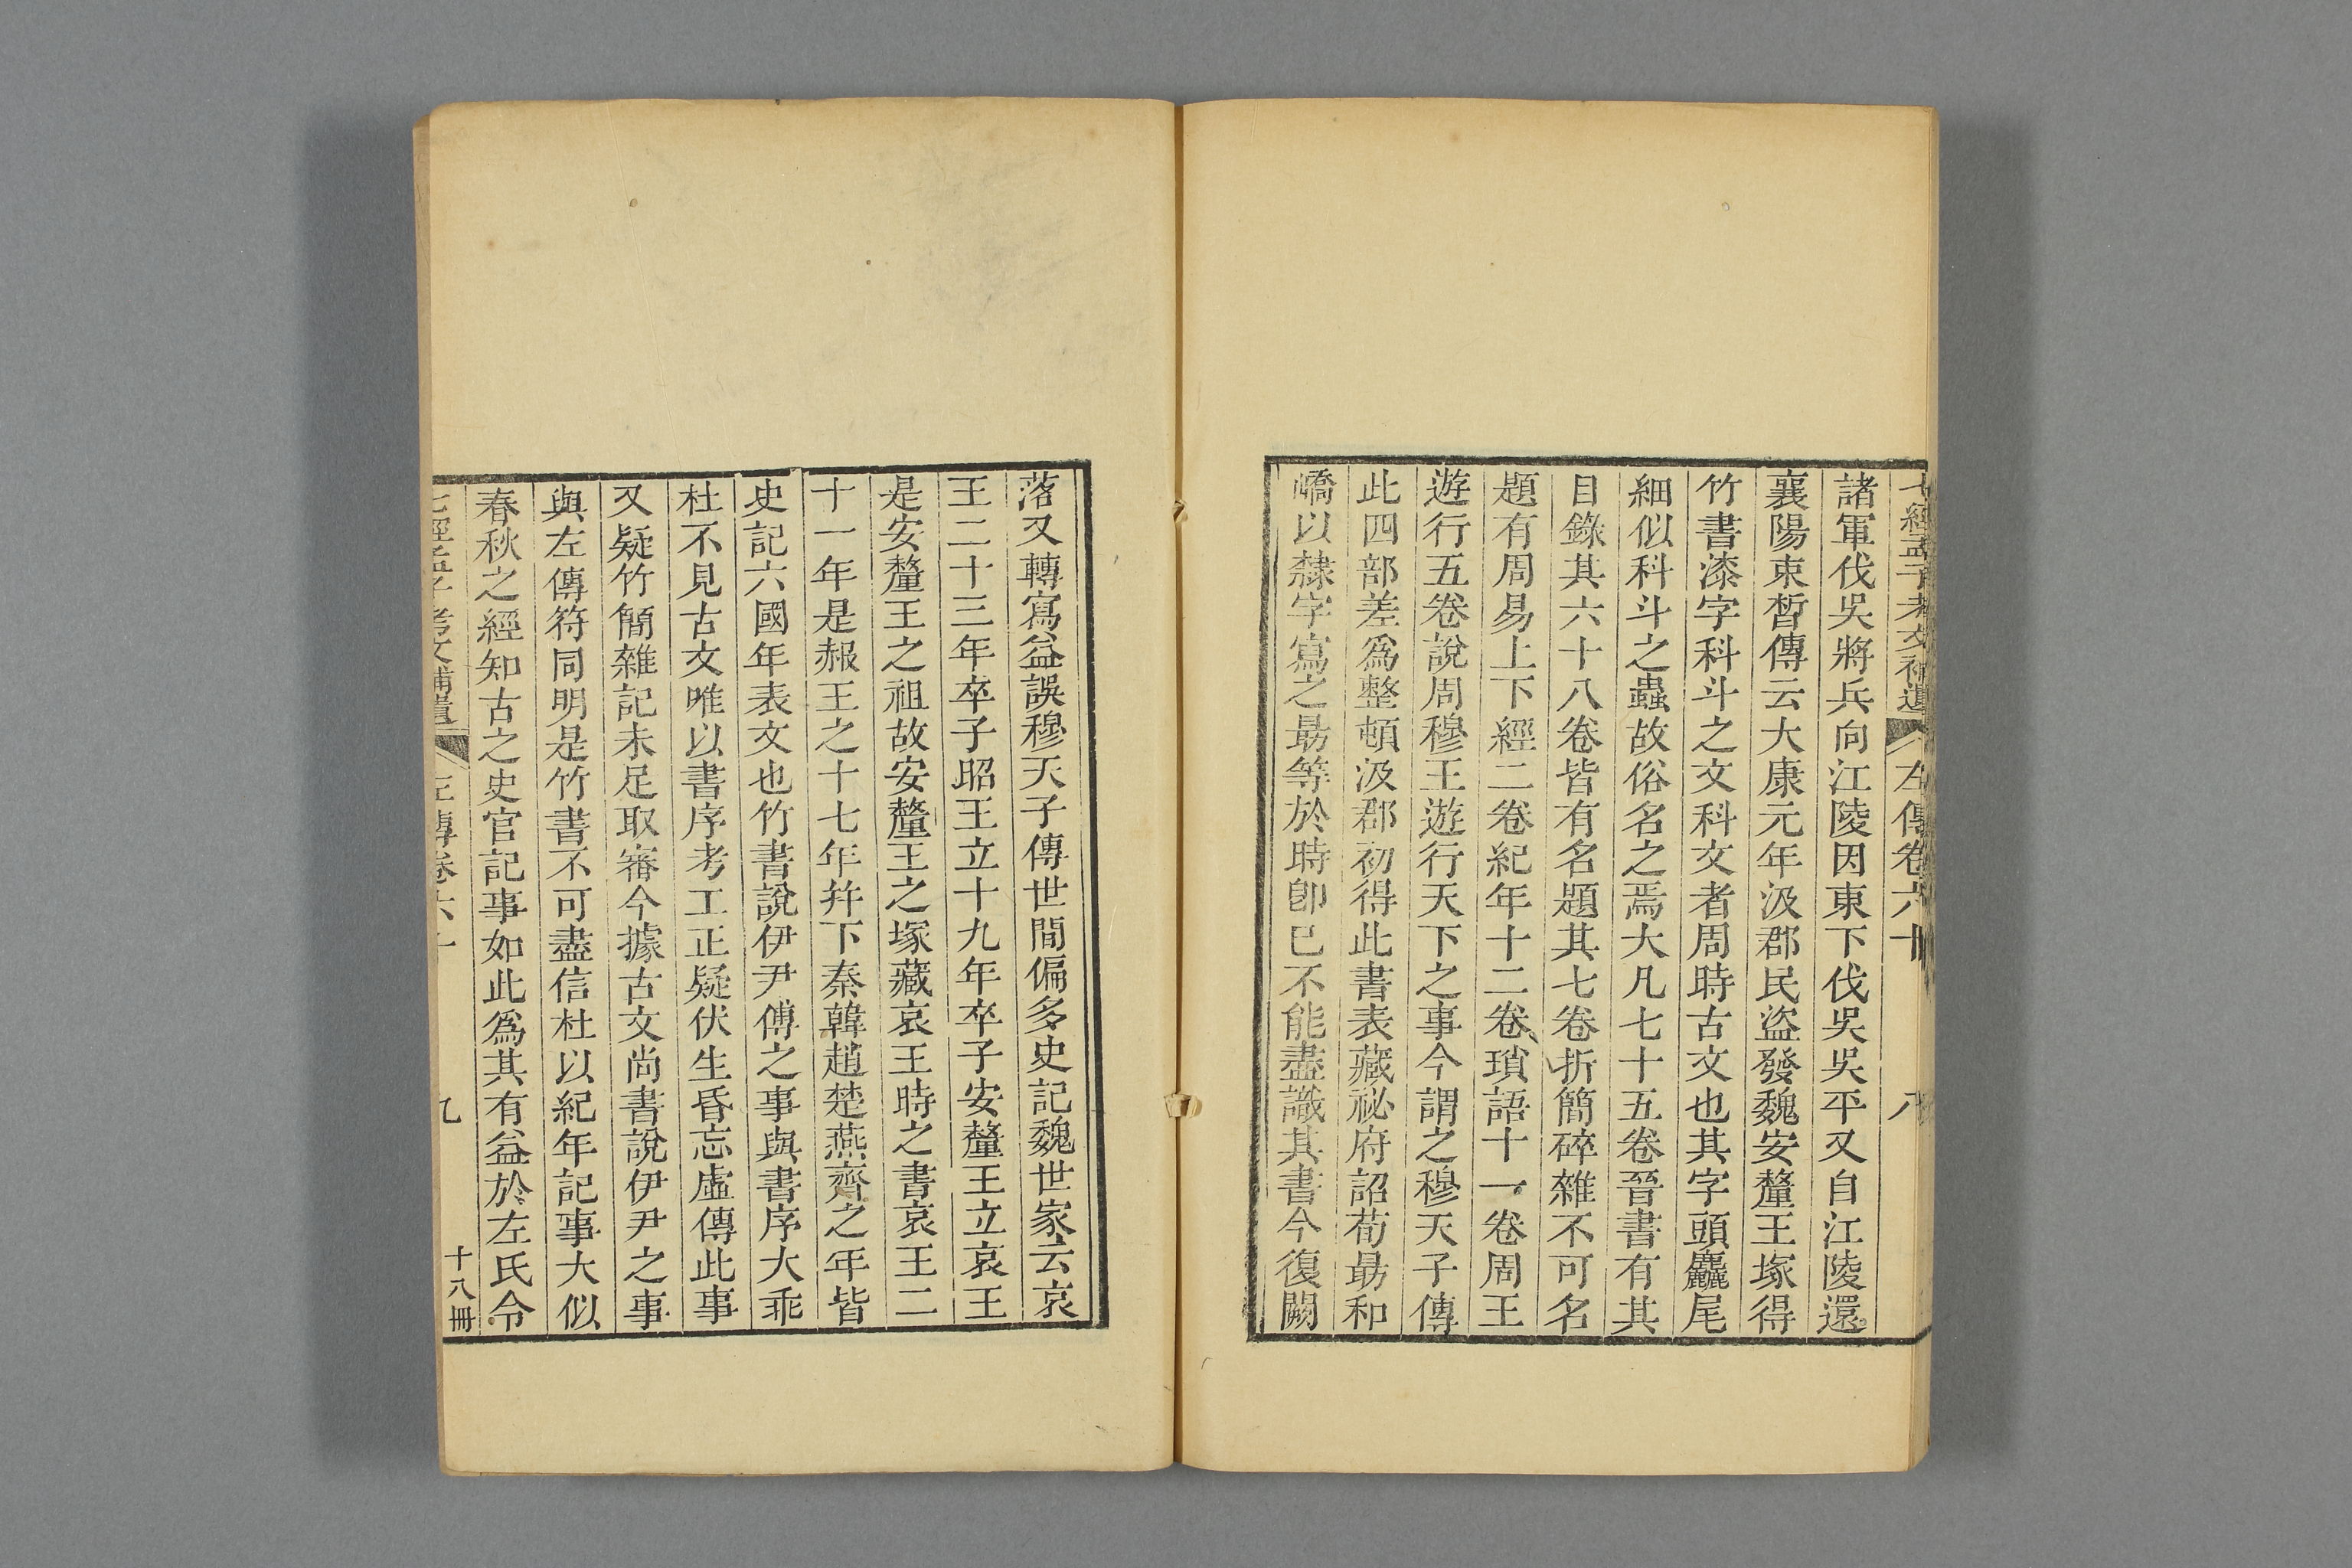 七經孟子考文補遺 左傳卷六十 八
諸軍伐吳將兵向江陵因東下伐吳吳平又自江陵還
襄陽束晳傳云大康元年汲郡民盜發魏安釐王塚得
竹書漆字科斗之文科文者周時古文也其字頭麤尾
細似科斗之蟲故俗名之焉大凡七十五卷晉書有其
目錄其六十八卷皆有名題其七卷折簡碎雜不可名
題有周易上下經二卷紀年十二卷瑣語十一卷周王
遊行五卷說周穆王遊行天下之事今謂之穆天子傳
此四部差爲整頓汲郡初得此書表藏祕府詔荀勗和
嶠以隸字寫之勗等於時卽已不能盡識其書今復闕
落又轉寫益誤穆天子傳世間偏多史記魏世家云哀
王二十三年卒子昭王立十九年卒子安釐王立哀王
是安釐王之祖故安釐王之塚藏哀王時之書哀王二
十一年是赧王之十七年幷下秦韓趙楚燕齊之年皆
史記六國年表文也竹書說伊尹傅之事與書序大乖
杜不見古文唯以書序考工正疑伏生昏忘虛傳此事
又疑竹簡雜記未足取審今據古文尚書說伊尹之事
與左傳符同明是竹書不可盡信杜以紀年記事大似
春秋之經知古之史官記事如此爲其有益於左氏令
七經孟子考文補遺 左傳卷六十 九 十八冊